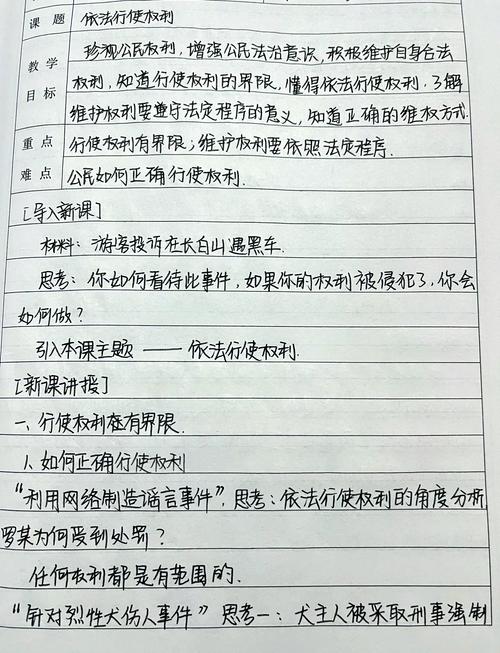 课 题 依法行使权利
珍视公民权利，增强公民法治意识，积极维护自身合法
教 学 权利，知道行使权利的界限，懂得依法行使权利，了解
目 标 维护权利要遵守法定程序的意义，知道正确的维权方式.
重 点 行使权利有界限；维护权利要依照法定程序.
难 点 公民如何正确行使权利.
[导入新课]
材料：游客投诉在长白山遇黑车.
思考：你如何看待此事件，如果你的权利被侵犯了，你会
如何做？
引入本课主题 —— 依法行使权利.
[新课讲授]
一、行使权利有界限.
1、如何正确行使权利
“利用网络制造谣言事件”，思考：依法行使权利的角度分析，
罗某为何受到处罚？
任何权利都是有范围的.
“针对烈性犬伤人事件” 思考一：犬主人被采取刑事强制